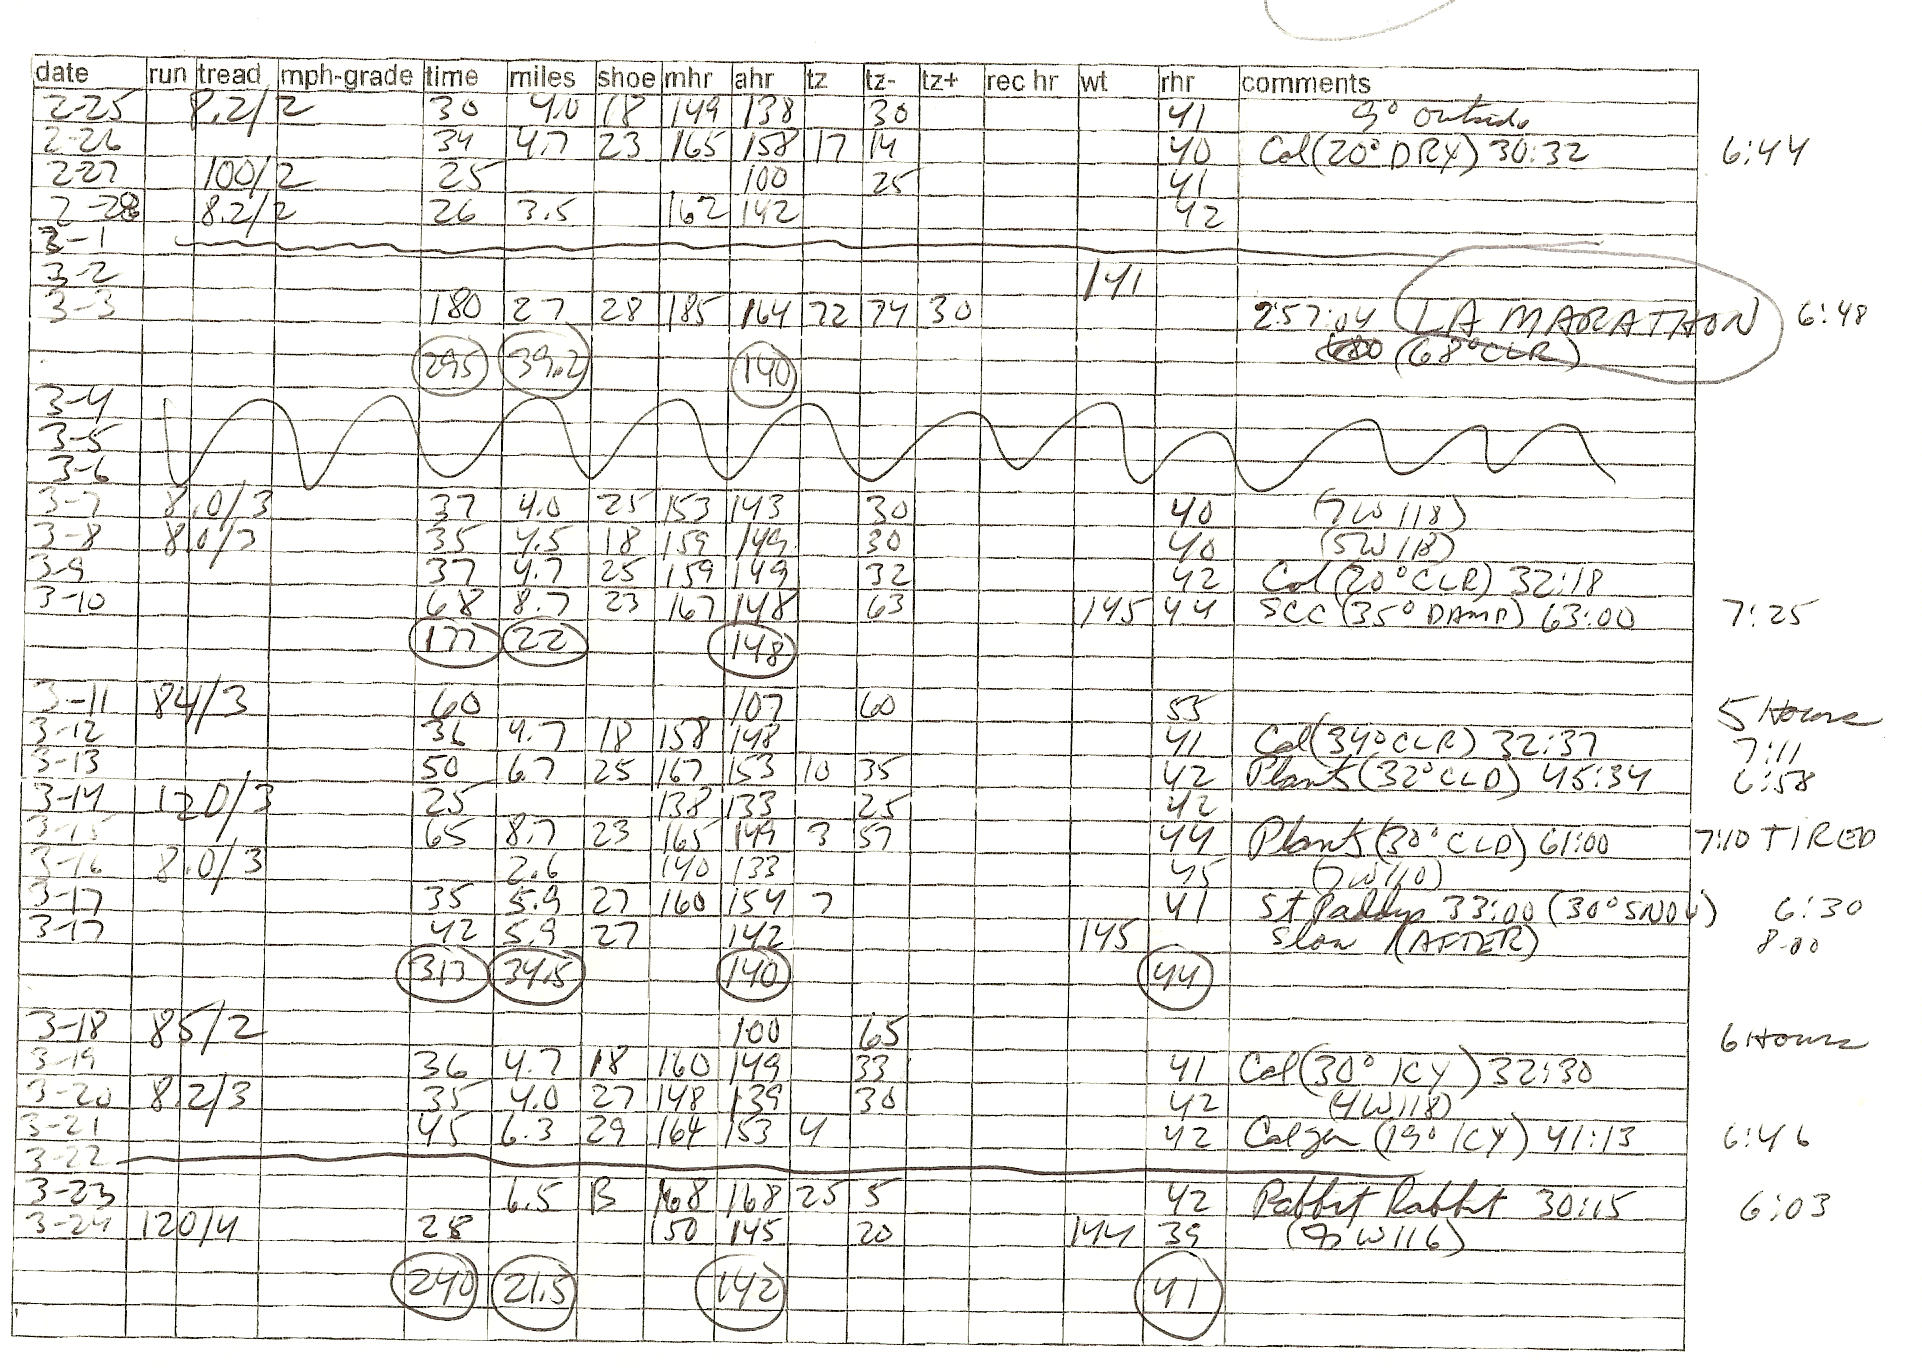 date run tread mph-grade time miles shoe mhr ahr tz tz- tz+ rec hr wt rhr comments
2-25 8.2/2 30 4.0 18 149 138 30 41 9° outside
2-26 34 4.7 23 165 158 17 14 40 Cal (20° DRY) 30:32 6:44
2-27 100/2 25 100 25 41
2-28 8.2/2 26 3.5 162 142 42
3-1
3-2 141
3-3 180 27 28 185 164 72 74 30 2:57:04 LA MARATHON 6:48
295 39.2 140 (68° CLR)
3-4
3-5
3-6
3-7 8.0/3 37 4.0 25 153 143 30 40 (7W118)
3-8 8.0/3 35 4.5 18 159 149 30 40 (5W118)
3-9 37 4.7 25 159 149 32 42 Cal (20° CLR) 32:18
3-10 68 8.7 23 167 148 63 145 44 SCC (35° DAMP) 63:00 7:25
177 22 148
3-11 84/3 60 107 60 55 5 Hours
3-12 36 4.7 18 158 148 41 Cal (34° CLR) 32:37 7:11
3-13 50 6.7 25 167 153 10 35 42 Plants (32° CLD) 45:34 6:58
3-14 120/3 25 138 133 25 42
3-15 65 8.7 23 165 149 3 57 44 Plants (30° CLD) 61:00 7:10 TIRED
3-16 8.0/3 2.6 140 133 45 (7W110)
3-17 35 5.9 27 160 154 7 41 St Paddys 33:00 (30° SNOW) 6:30
3-17 42 5.9 27 142 145 Slow (AFTER) 8:00
313 34.5 140 44
3-18 85/2 100 65 6 Hours
3-19 36 4.7 18 160 149 33 41 Cal (30° ICY) 32:30
3-20 8.2/3 35 4.0 27 148 139 30 42 (4W118)
3-21 45 6.3 29 164 153 4 42 (19° ICY) 41:13 6:46
3-22
3-23 6.5 B 168 168 25 5 42 Rabbit Rabbit 30:15 6:03
3-24 120/4 28 150 145 20 144 39 W116)
240 21.5 142 41